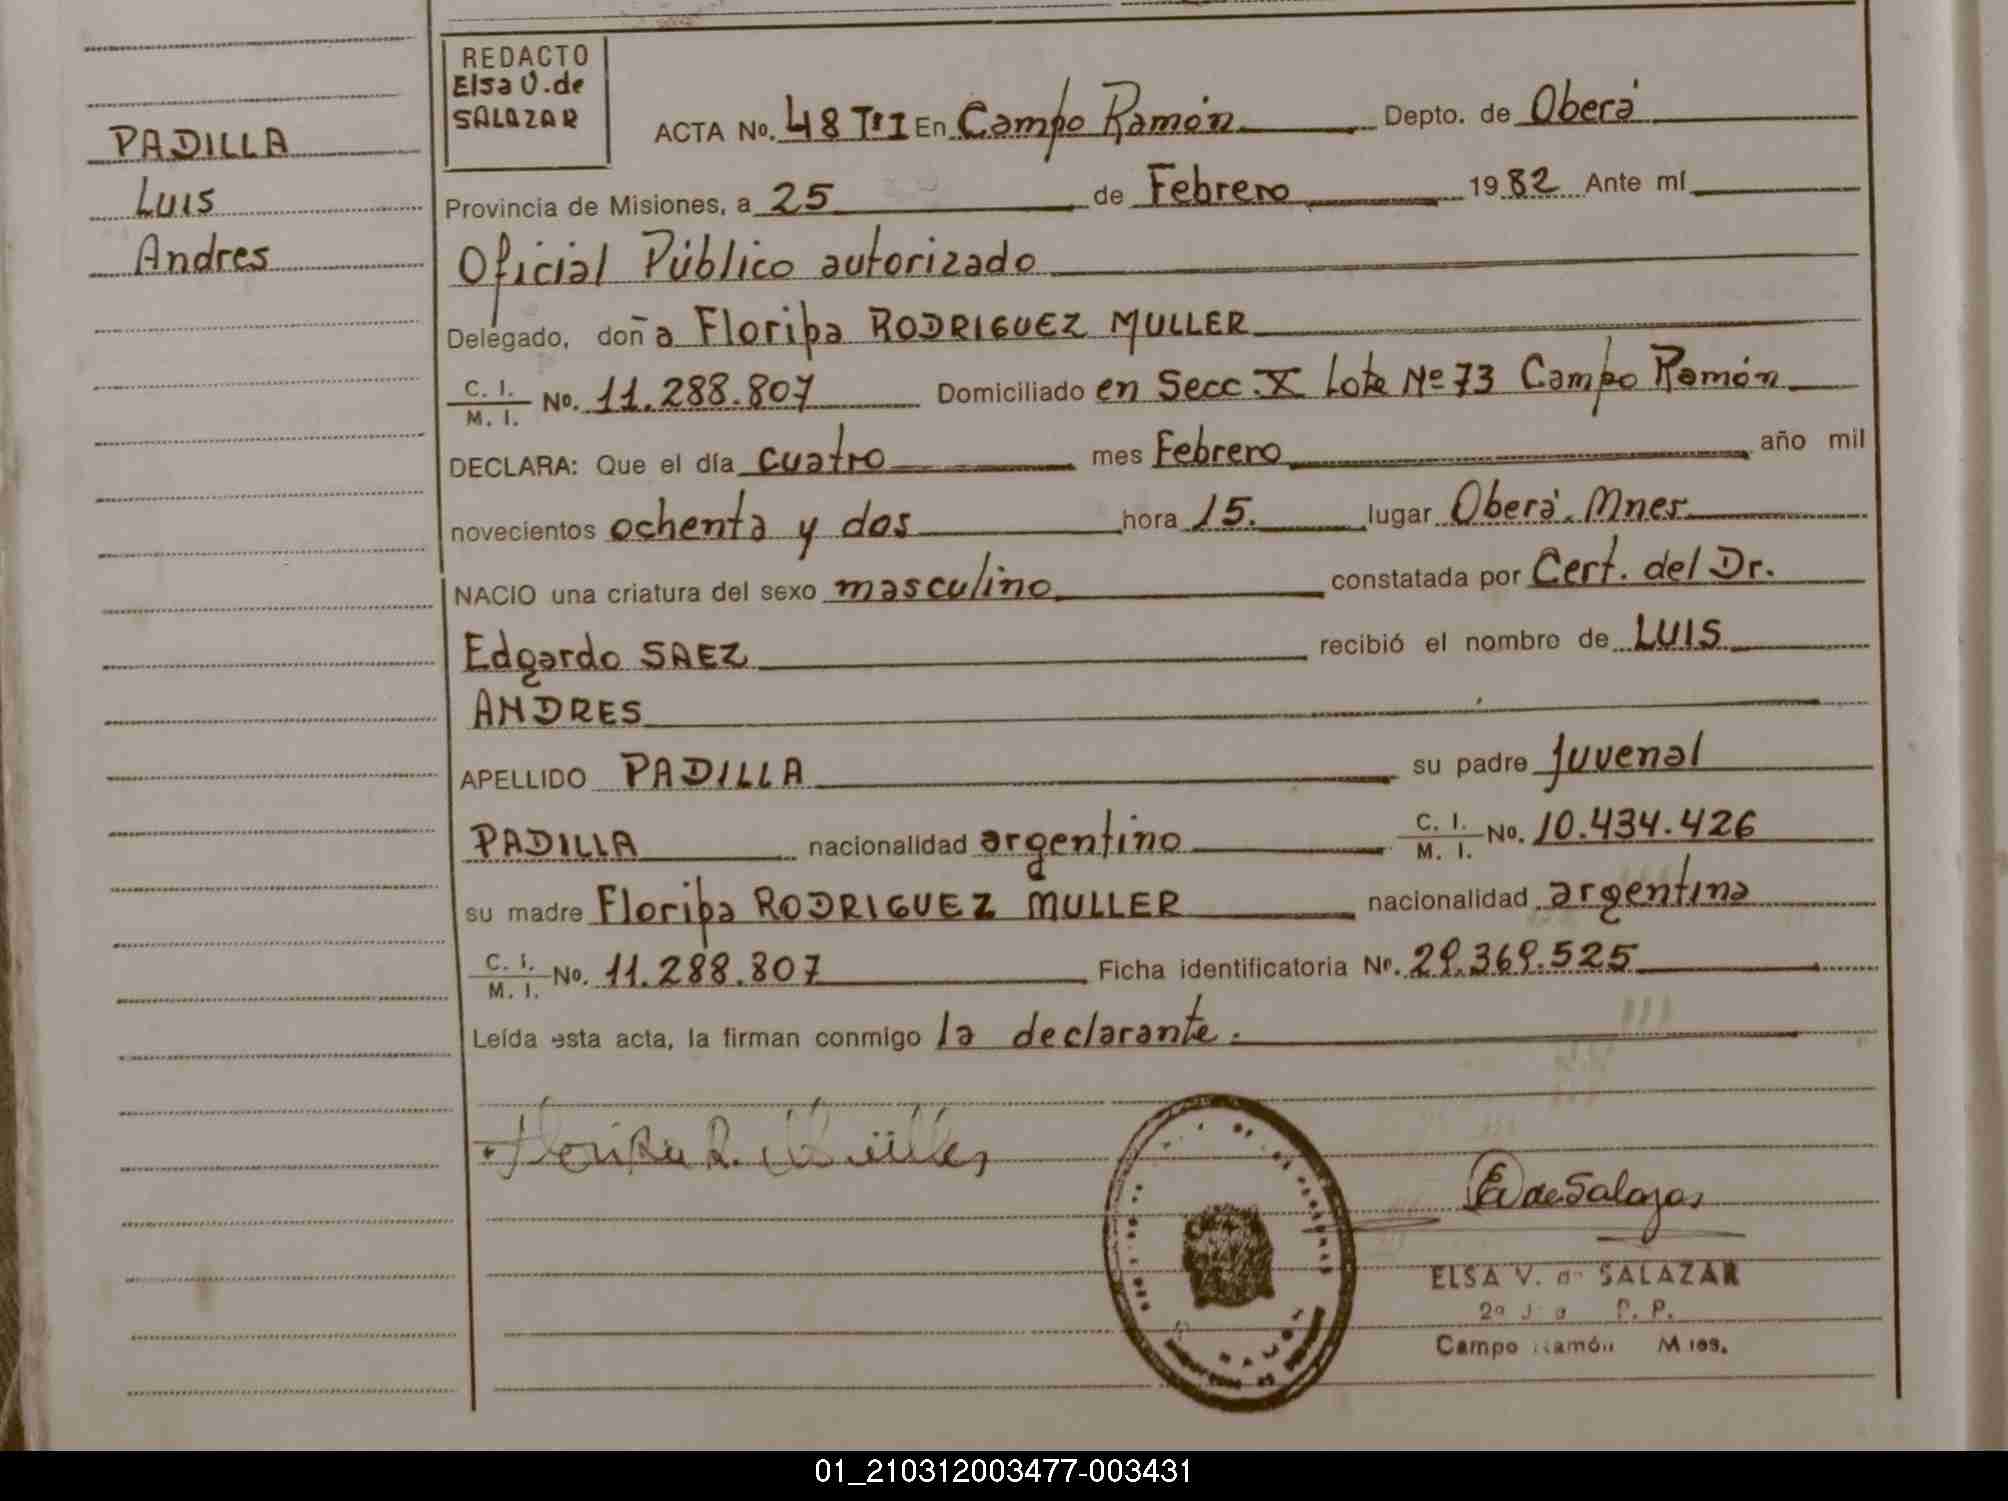 PADILLA
Luis
Andres
REDACTO
Elsa V. de
SALAZAR
ACTA No. 48 TºI En Campo Ramón Depto. de Oberá
Provincia de Misiones, a 25 de Febrero 1982 Ante mí
Oficial Público autorizado
Delegado, doña Floripa RODRIGUEZ MULLER
C. I. / M. I. No. 11.288.807 Domiciliado en Secc. X Lote Nº 73 Campo Ramón
DECLARA: Que el día cuatro mes Febrero año mil
novecientos ochenta y dos hora 15. lugar Oberá. Mnes
NACIO una criatura del sexo masculino constatada por Cert. del Dr.
Edgardo SAEZ recibió el nombre de LUIS
ANDRES
APELLIDO PADILLA su padre Juvenal
PADILLA nacionalidad argentino C. I. / M. I. No. 10.434.426
su madre Floripa RODRIGUEZ MULLER nacionalidad argentina
C. I. / M. I. No. 11.288.807 Ficha identificatoria Nº. 29.369.525
Leída esta acta, la firman conmigo la declarante.
Floripa R. Müller
EV de Salazar
ELSA V. de SALAZAR
Campo Ramón Mnes.
01_210312003477-003431